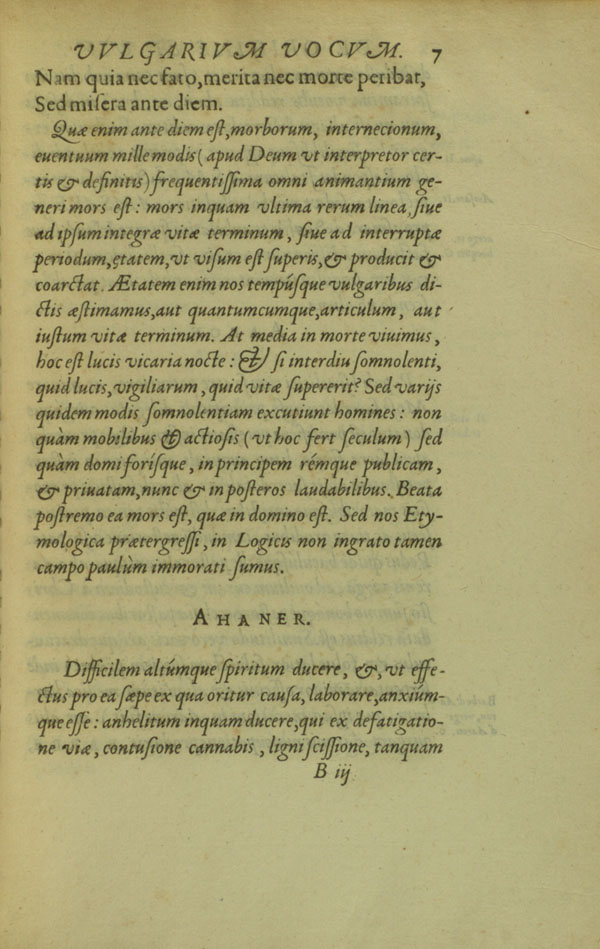 VVLGARIVM VOCVM. 7
Nam quia nec fato, merita nec morte peribat,
Sed misera ante diem.
Quæ enim ante diem est, morborum, internecionum,
euentuum mille modis (apud Deum vt interpretor cer-
tis & definitis) frequentissima omni animantium ge-
neri mors est: mors inquam vltima rerum linea, siue
ad ipsum integræ vitæ terminum, siue ad interruptæ
periodum, ętatem, vt visum est superis, & producit &
coarctat. Ætatem enim nos tempúsque vulgaribus di-
ctis æstimamus, aut quantumcumque, articulum, aut
iustum vitæ terminum. At media in morte viuimus,
hoc est lucis vicaria nocte: & si interdiu somnolenti,
quid lucis, vigiliarum, quid vitæ supererit? Sed varijs
quidem modis somnolentiam excutiunt homines: non
quàm mobilibus & actiosis (vt hoc fert seculum) sed
quàm domi forísque, in principem rémque publicam,
& priuatam, nunc & in posteros laudabilibus. Beata
postremo ea mors est, quæ in domino est. Sed nos Ety-
mologica prætergressi, in Logicis non ingrato tamen
campo paulùm immorati sumus.
AHANER.
Difficilem altúmque spiritum ducere, &, vt effe-
ctus pro ea sæpe ex qua oritur causa, laborare, anxiúm-
que esse: anhelitum inquam ducere, qui ex defatigatio-
ne viæ, contusione cannabis, ligni scissione, tanquam
B iij